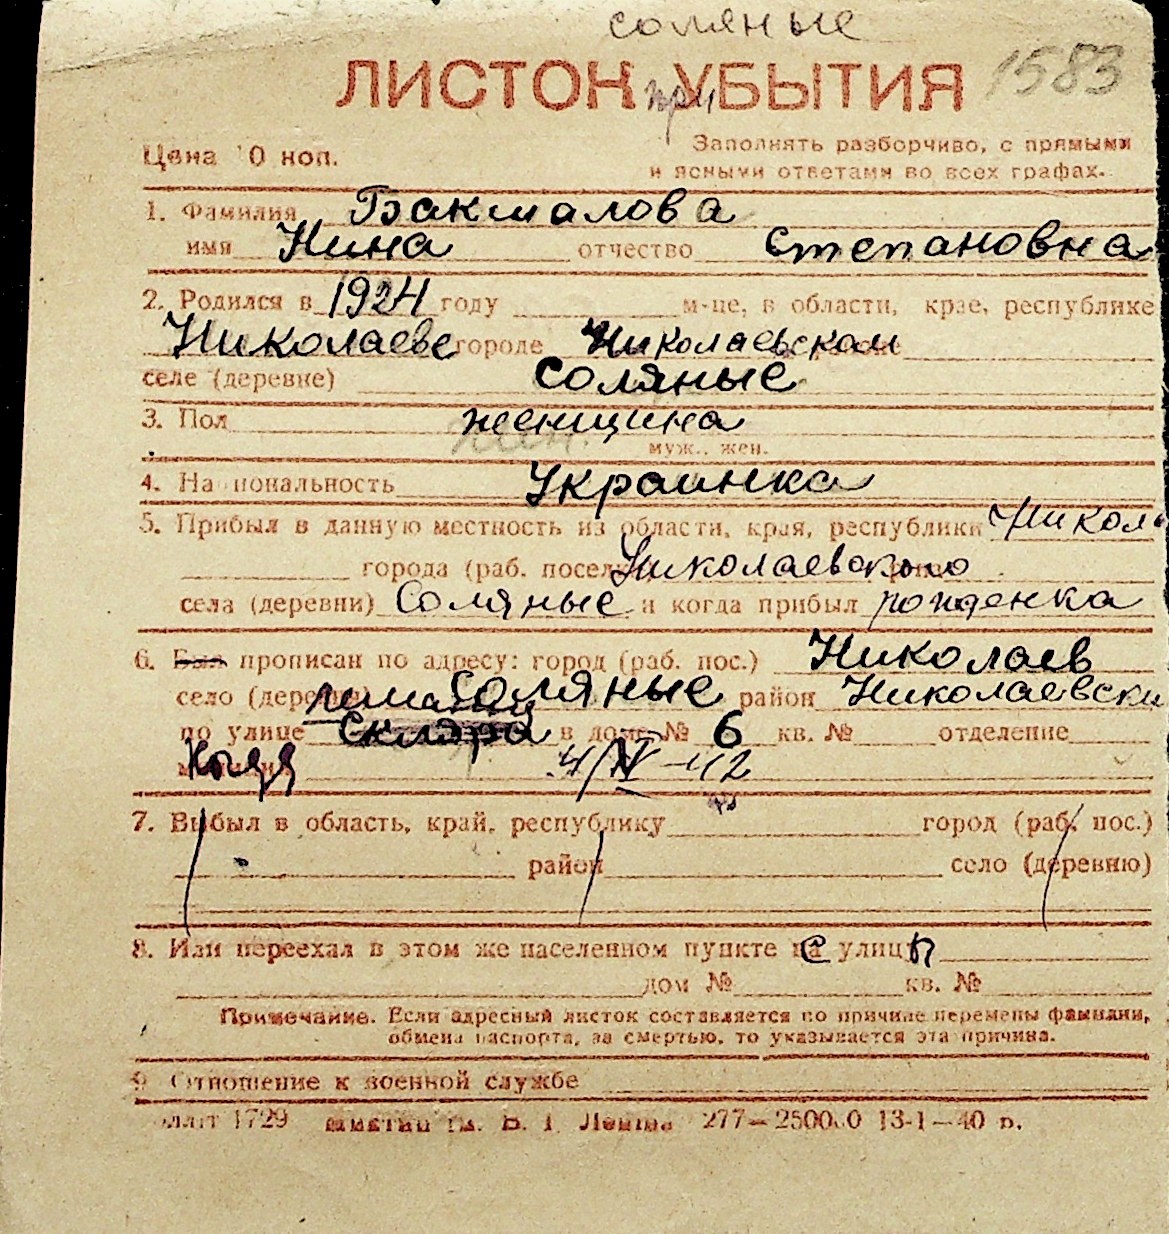 соляные
ЛИСТОК при УБЫТИЯ 1583
Цена 10 коп. Заполнять разборчиво, с прямыми
и ясными ответами во всех графах.
1. Фамилия Бакшалова
имя Нина отчество Степановна
2. Родился в 1924 году м-це, в области, крае, республике
Николаеве городе Николаевском
селе (деревне) Соляные
3. Пол женщина
муж., жен.
4. Национальность Украинка
5. Прибыл в данную местность из области, края, республики Никол
города (раб. поселка) Николаевского
села (деревни) Соляные и когда прибыл рожденка
6. Был прописан по адресу: город (раб. пос.) Николаев
село (деревня) Соляные район Николаевски
по улице Скляра в доме № 6 кв. № отделение
4/IV-42
7. Выбыл в область, край, республику город (раб. пос.)
район село (деревню)
8. Или переехал в этом же населенном пункте с улицы
дом № кв. №
Примечание. Если адресный листок составляется по причине перемены фамилии,
обмена паспорта, за смертью, то указывается эта причина.
9 Отношение к военной службе
1729 им. В. І Леніна 277—25000 13-1—40 р.